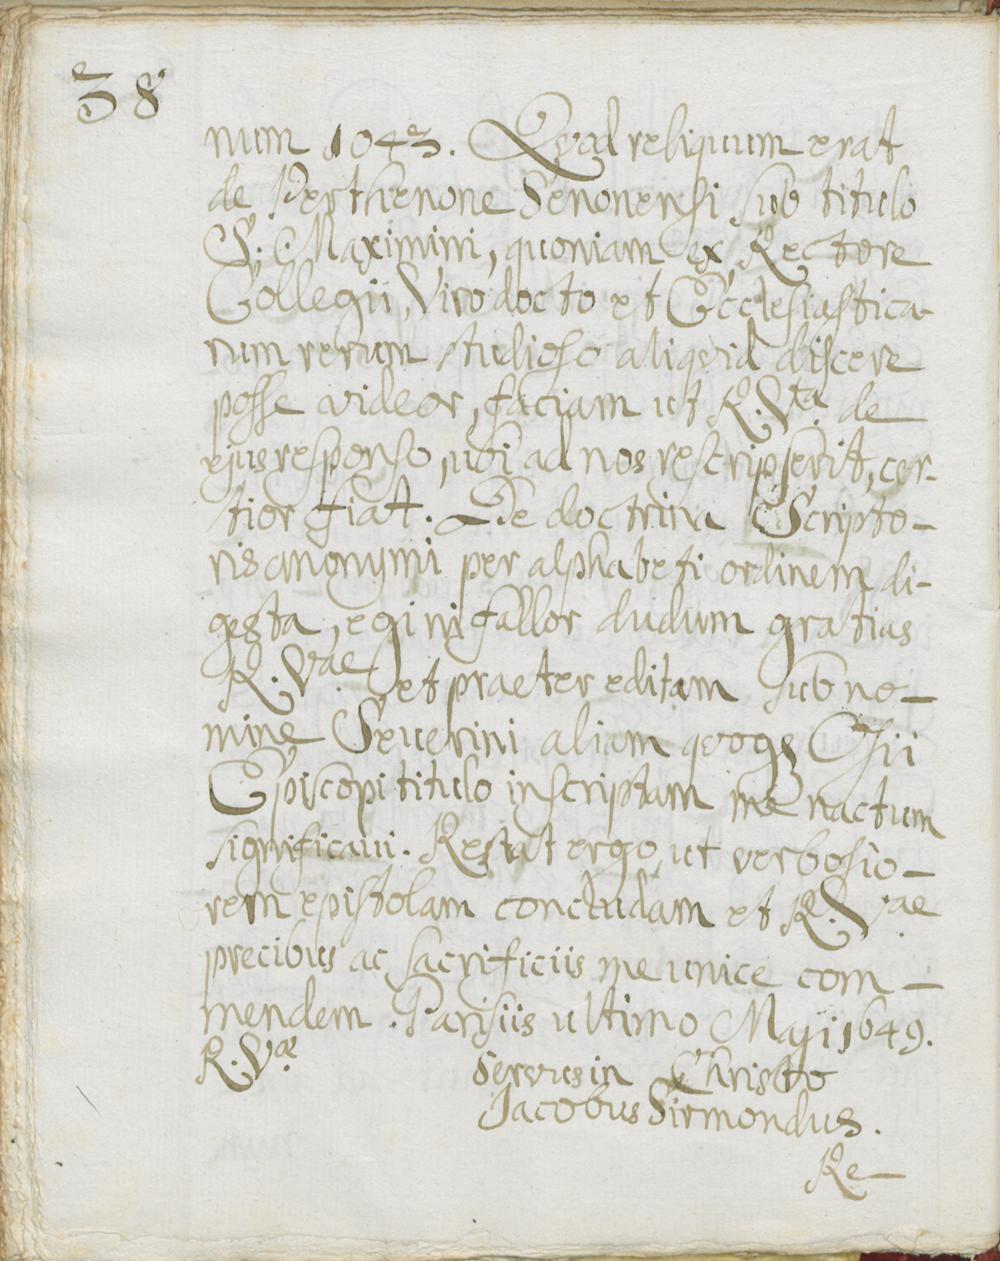 38
num 1043. Quod reliquum erat
de Parthenone Senonensi sub titulo
S. Maximini, quoniam ex Rectore
Collegii, Viro docto et Ecclesiastica-
rum rerum studioso aliquid discere
posse videor, faciam ut R. Vta. de
ejus responso, ubi ad nos rescripserit, cer-
tior fiat. De doctrina Scripto-
ris anonymi per alphabeti ordinem di-
gesta, egi ni fallor dudum gratias
R. Vae. et praeter editam sub no-
mine Severini aliam quoqs
Episcopi titulo inscriptam me nactum
significavi. Restat ergo, ut verbosio-
rem epistolam concludam et R. Vae
precibus ac sacrificiis me unice com-
mendem. Parisiis ultimo Maji 1649.
R. Vae.
Servus in Christo
Jacobus Sirmondus.
Re-